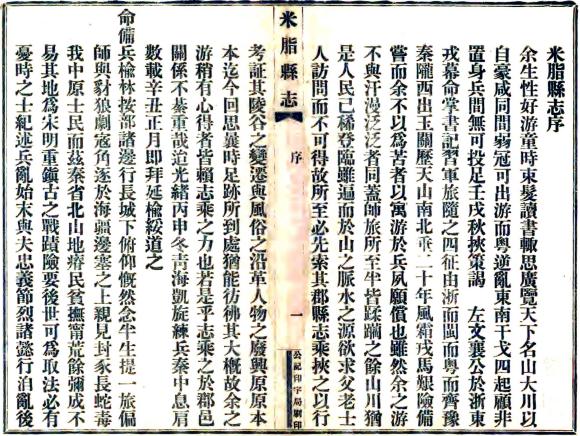 米脂縣志序
余生性好游童時束髮讀書輒思廣覽天下名山大川以
自豪咸同間弱冠可出游而粵逆亂東南干戈四起顧非
置身兵間無可投足壬戌秋挾策謁　左文襄公於浙東
戎幕命掌書記習軍旅隨之四征由浙而閩而粵而齊豫
秦隴西出玉關歷天山南北垂二十年風霜戎馬艱險備
嘗而余不以為苦者以寓游於兵夙願償也雖然余之游
不與汗漫泛泛者同蓋師旅所至半皆蹂躪之餘山川猶
是人民已稀登臨雖遍而於山之脈水之源欲求父老士
人訪問而不可得故所至必先索其郡縣志乘挾之以行
米脂縣志
序
一
公記印字局刷印
考証其陵谷之變遷與風俗之沿革人物之廢興原原本
本迄今回思曩時足跡所到處猶能彷彿其大概故余之
游稍有心得者皆賴志乘之力也若是乎志乘之於郡邑
關係不綦重哉迨光緒丙申冬青海凱旋練兵秦中息肩
數載辛丑正月即拜延榆綏道之
命備兵榆林按部諸邊行長城下俯仰慨然念半生提一旅偏
師與豺狼劇寇角逐於海疆邊塞之上親見封豕長蛇毒
我中原士民而茲秦省北山地瘠民貧撫甯荒餘彌成不
易其地為宋明重鎮古之戰蹟險要後世可為取法必有
憂時之士紀述兵亂始末與夫忠義節烈諸懿行洎亂後